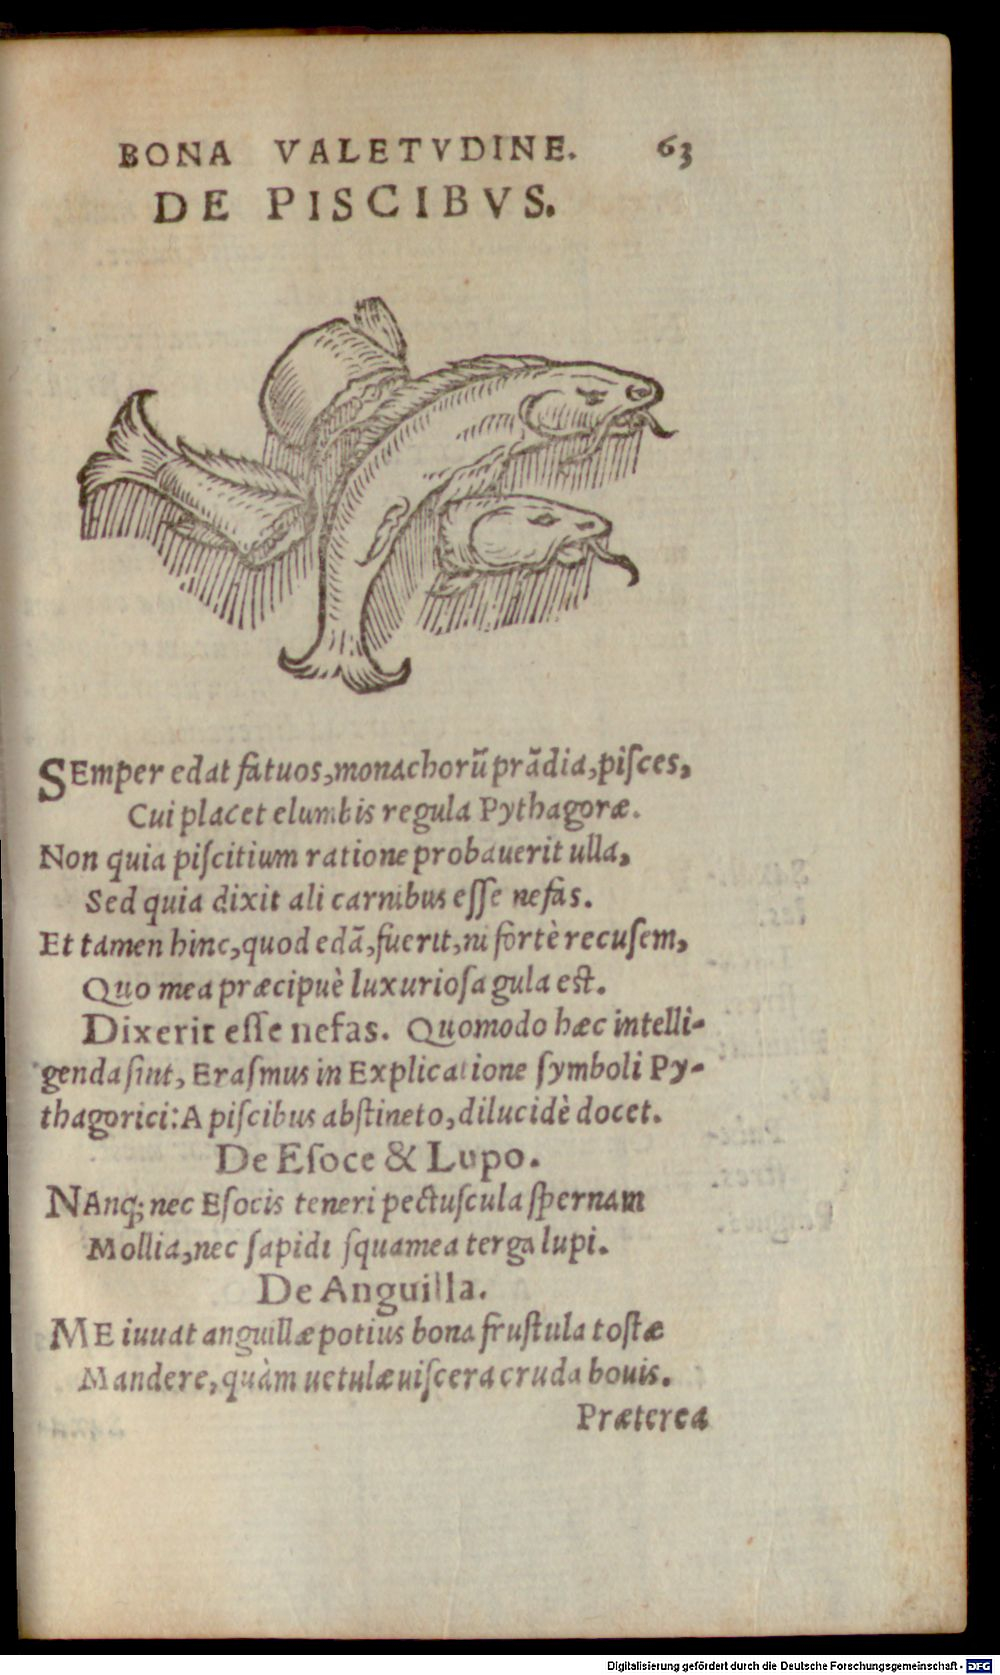 BONA VALETVDINE. 63
DE PISCIBVS.
SEmper edat fatuos, monachorũ prãdia, piſces,
Cui placet elumbis regula Pythagoræ.
Non quia piſcitium ratione probauerit ulla,
Sed quia dixit ali carnibus eſſe nefas.
Et tamen hinc, quod edã, fuerit, ni fortè recuſem,
Quo mea præcipuè luxurioſa gula est.
Dixerit eſſe nefas. Quomodo hæc intelli-
genda ſint, Eraſmus in Explicatione ſymboli Py-
thagorici: A piſcibus abſtineto, dilucidè docet.
De Eſoce & Lupo.
NAnq; nec Eſocis teneri pectuſcula ſpernam
Mollia, nec ſapidi ſquamea terga lupi.
De Anguilla.
ME iuuat anguillæ potius bona fruſtula toſtæ
Mandere, quàm uetulæ uiſcera cruda bouis.
Præterea
Digitalisierung gefördert durch die Deutsche Forschungsgemeinschaft - DFG